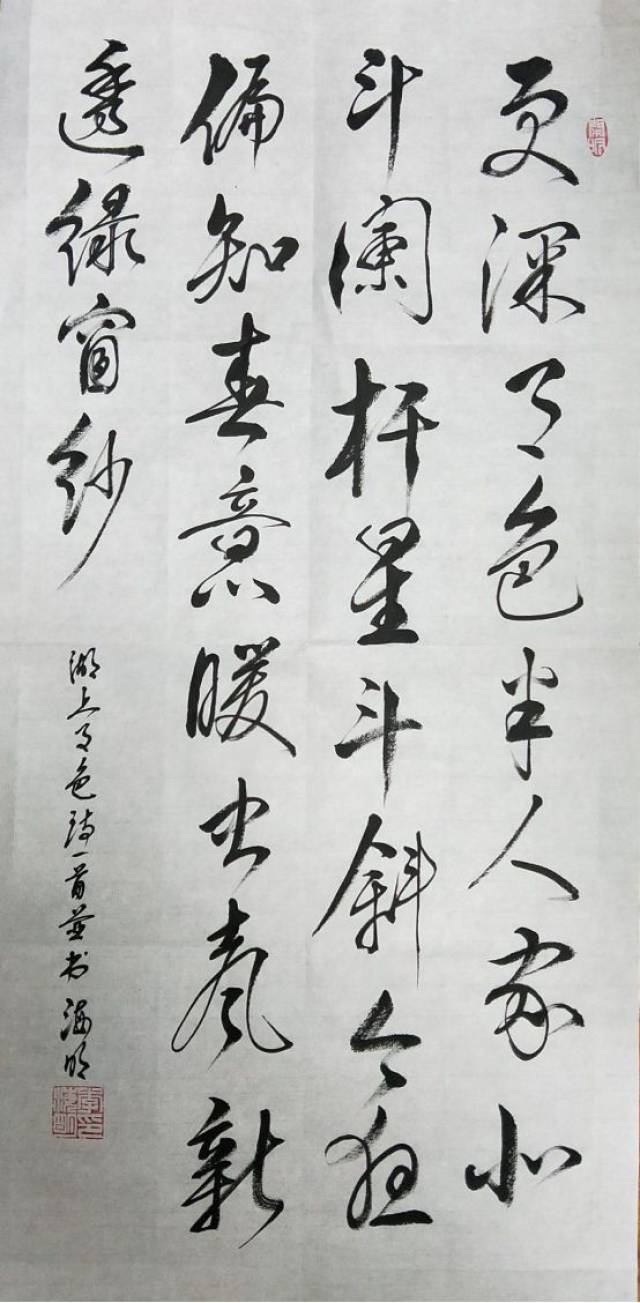 更深月色半人家北
斗阑杆星斗斜今夜
偏知春意暖虫声新
透绿窗纱
湖上月色诗一首并书 海明